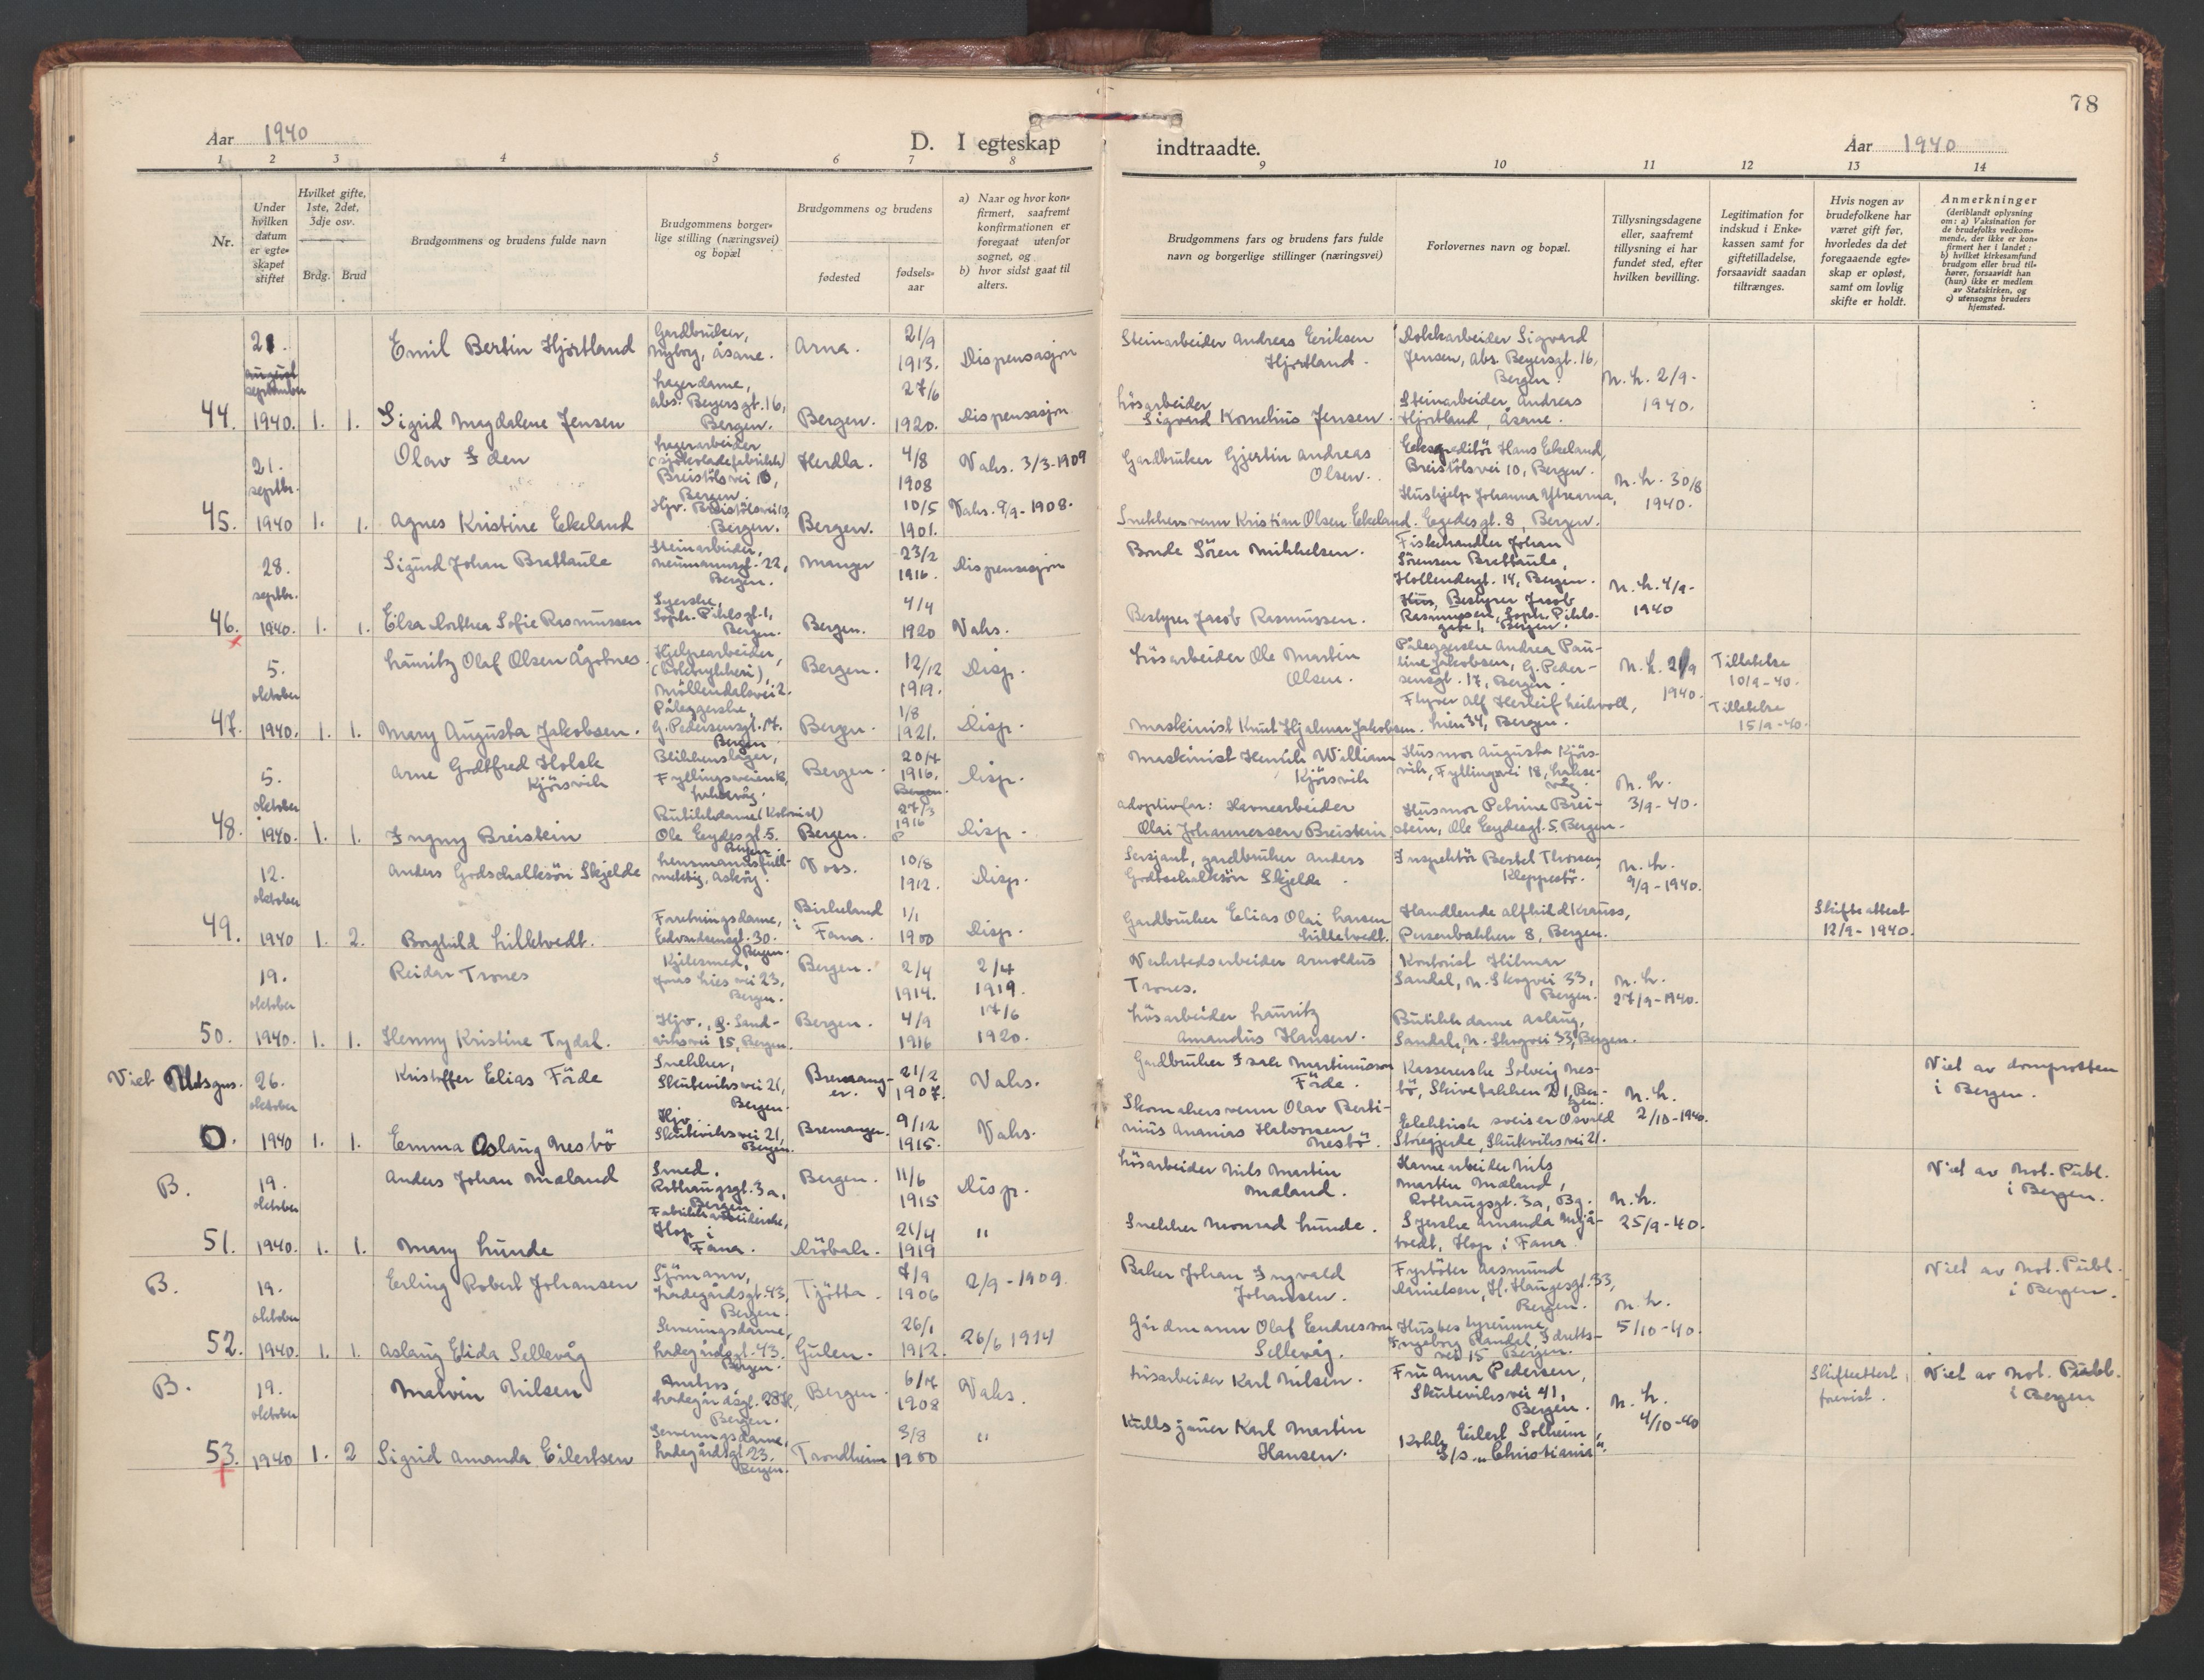 78
Aar 1940
D. I egteskap
indtraadte.
Aar 1940
1 2 3 4 5 6 7 8
9 10 11 12 13 14
Nr.
Under hvilken datum er egteskapet stiftet
Hvilket gifte, 1ste, 2det, 3dje osv.
Brdg. Brud
Brudgommens og brudens fulde navn
Brudgommens borgerlige stilling (næringsvei) og bopæl
Brudgommens og brudens
fødested
fødselsaar
a) Naar og hvor konfirmert, saafremt konfirmationen er foregaat utenfor sognet, og
b) hvor sidst gaat til alters.
Brudgommens fars og brudens fars fulde navn og borgerlige stillinger (næringsvei)
Forlovernes navn og bopæl.
Tillysningsdagene eller, saafremt tillysning ei har fundet sted, efter hvilken bevilling.
Legitimation for indskud i Enkekassen samt for giftetilladelse, forsaavidt saadan tiltrænges.
Hvis nogen av brudefolkene har været gift før, hvorledes da det foregaaende egteskap er opløst, samt om lovlig skifte er holdt.
Anmerkninger
(deriblandt oplysning om: a) Vaksination for de brudefolks vedkommende, der ikke er konfirmert her i landet; b) hvilket kirkesamfund brudgom eller brud tilhører, forsaavidt han (hun) ikke er medlem av Statskirken, og c) utensogns bruders hjemsted.
44. 21. august september 1940. 1. 1.
Emil Bertin Hjortland
Gardbruker, Nyborg, Åsane.
Arna.
21/9 1913.
Dispensasjon
Steinarbeider Andreas Eriksen Hjortland.
Dokkarbeider Sigvard Jensen, Abs. Beyersgt. 16, Bergen.
N. h. 2/9-1940.
Sigrid Magdalene Jensen
Lagerdame, Abs. Beyersgt. 16, Bergen.
Bergen.
27/6 1920.
Dispensasjon
Løsarbeider Sigvard Kornelius Jensen.
Steinarbeider Andreas Hjortland, Åsane.
45. 21. septbr. 1940 1. 1.
Olav Iden
Lagerarbeider (sjokoladefabrikk) Breistölsvei 10, Bergen.
Herdla.
4/8 1908
Vaks. 3/3-1909
Gardbruker Gjertin Andreas Olsen.
Ekspeditör Hans Ekeland, Breistölsvei 10, Bergen.
N. h. 30/8 1940.
Agnes Kristine Ekeland
Hjv. Breistölsvei 10, Bergen.
Bergen.
10/5 1901.
Vaks. 9/9-1908.
Snekkersvenn Kristian Olsen Ekeland.
Hushjelp Johanna Ytrearna, Egedesgt. 8, Bergen.
46. 28. septbr. 1940. 1. 1.
Sigurd Johan Brattaule
Steinarbeider, Neumannsgt. 22, Bergen.
Manger
23/2 1916.
Dispensasjon
Bonde Sören Mikkelsen.
Fiskehandler Johan Sörensen Brattaule, Hollendergt. 14, Bergen.
N. h. 4/9-1940
Elsa Dorthea Sofie Rasmussen
Syerske, Soph. Pihlsgt. 1, Bergen.
Bergen.
4/4 1920
Vaks.
Bestyrer Jacob Rasmussen.
Hus, Bestyrer Jacob Rasmussen, Soph. Pihlsgate 1, Bergen.
47. 5. oktober 1940. 1. 1.
Lauritz Olaf Olsen Ågotnes.
Hjelpearbeider, Möllendalsvei 2.
Bergen.
12/12 1919.
Disp.
Løsarbeider Ole Martin Olsen.
Påleggerske Andrea Pauline Jakobsen, G. Pedersensgt. 17, Bergen.
N. h. 21/9 1940.
Tillatelse 10/9-40.
Mary Augusta Jakobsen.
Påleggerske, G. Pedersensgt. 17. Bergen
Bergen.
1/8 1921.
Disp.
Maskinist Knut Hjalmar Jakobsen.
Flyver Alf Herleif Leikvoll, Lien 34, Bergen.
Tillatelse 15/9-40.
48. 5. oktober 1940. 1. 1.
Arne Godtfred Holck Kjörsvik
Blikkenslager, Fyllingsveien 18,
Bergen.
20/4 1916. Bergen.
Disp.
Maskinist Henrik William Kjörsvik
Husmor Augusta Kjörsvik, Fyllingsvei 18, Laksevåg.
N. h. 3/9-40.
Ingny Breistein
Butikkdame (Kolonial) Ole Eegdesgt. 5. Bergen.
Bergen.
27/3 1916
Disp.
Adoptivfar: Havnearbeider Olai Johannessen Breistein
Husmor Petrine Breistein, Ole Eegdesgt. 5. Bergen.
49. 12. oktober 1940 1. 2.
Anders Godschalksön Skjelde
Lensmannsfullmektig, Askøy.
Voss.
10/8 1912.
Disp.
Sersjant, gardbruker Anders Godtschalksön Skjelde.
Inspektör Bertel Thorsen, Kleppestö.
N. h. 9/9-1940.
Borghild Lilletvedt.
Forretningsdame, Edvardsensgt. 30. Bergen.
Birkeland i Fana.
1/1 1900
Disp.
Gardbruker Elias Olai Larsen Lilletvedt.
Handlende Alfhild Krauss, Persenbakken 8, Bergen.
Skifteattest 12/9-1940.
50. 19. oktober 1940. 1. 1.
Reidar Trones
Kjelesmed, Jonas Lies vei 23, Bergen.
Bergen.
2/4 1914.
2/4 1919.
Verkstedsarbeider Arnoldus Trones.
Kontorist Hilmar Sandal, N. Skogvei 33, Bergen.
N. h. 27/9-1940.
Henny Kristine Tydal.
Hjv., S. Sandviksvei 15, Bergen.
Bergen.
4/9 1916
17/6 1920.
Løsarbeider Lauritz Amandus Hansen.
Butikkdame Aslaug, Sandal, N. Skogvei 33, Bergen.
Viet Utsgns. 0. 26. oktober 1940 1. 1.
Kristoffer Elias Förde
Snekker, Skuteviksvei 21, Bergen.
Bremanger.
21/2 1907.
Vaks.
Gardbruker Isak Martinusson Förde.
Kassererske Solveig Nesbö, Skivebakken 21, Bergen.
N. h. 2/10-1940.
Viet av domprosten i Bergen.
Emma Aslaug Nesbö
Hjv. Skuteviksvei 21, Bergen.
Bremanger.
9/12 1915.
Vaks.
Skomakersvenn Olav Bertinius Ananias Halvorsen Nesbö.
Elektrisk sveiser Osvald Storegjerde, Skuteviksvei 21.
B. 51. 19. oktober 1940. 1. 1.
Anders Johan Mæland
Smed, Rothaugsgt. 3a, Bergen.
Bergen.
11/6 1915
Disp.
Løsarbeider Nils Martin Mæland.
Havnearbeider Nils Martin Mæland, Rothaugsgt. 3a, Bg.
N. h. 25/9-40.
Viet av Not. Publ. i Bergen.
Mary Lunde
Fabrikkarbeiderske, Hop i Fana.
Dröbak.
21/4 1919
"
Snekker Monrad Lunde.
Syerske Amanda Mjåtvedt, Hop i Fana.
B. 52. 19. oktober 1940. 1. 1.
Erling Robert Johansen
Sjömann, Ladegårdsgt. 43, Bergen.
Tjötta.
7/9 1906
2/9-1909.
Baker Johan Ingvald Johansen.
Fyrböter Aasmund Danielsen, H. Haugesgt. 33, Bergen.
N. h. 5/10-40.
Viet av Not. Publ. i Bergen.
Aslaug Elida Sellevåg
Serveringsdame, Ladegårdsgt. 43. Bergen.
Gulen.
26/1 1912.
26/6 1914
Gårdmann Olaf Endresson Sellevåg.
Husbestyrerinne Ingeborg Mandal, Idrettsvei 15 Bergen.
B. 53. 19. oktober 1940 1. 2
Malvin Nilsen
Ladegårdsgt. Bergen.
Bergen.
6/7 1908
Vaks.
Løsarbeider Karl Nilsen.
Fru Anna Pedersen, Skuteviksvei 41, Bergen.
N. h. 4/10-40
Skifteattest forevist.
Viet av Not. Publ. i Bergen
Sigrid Amanda Eilertsen
Serveringsdame, Ladegårdsgt. 23. Bergen.
Trondheim
3/8 1900
"
Kullsjauer Karl Martin Hansen.
Eilert Solheim, S/s „Christiania".